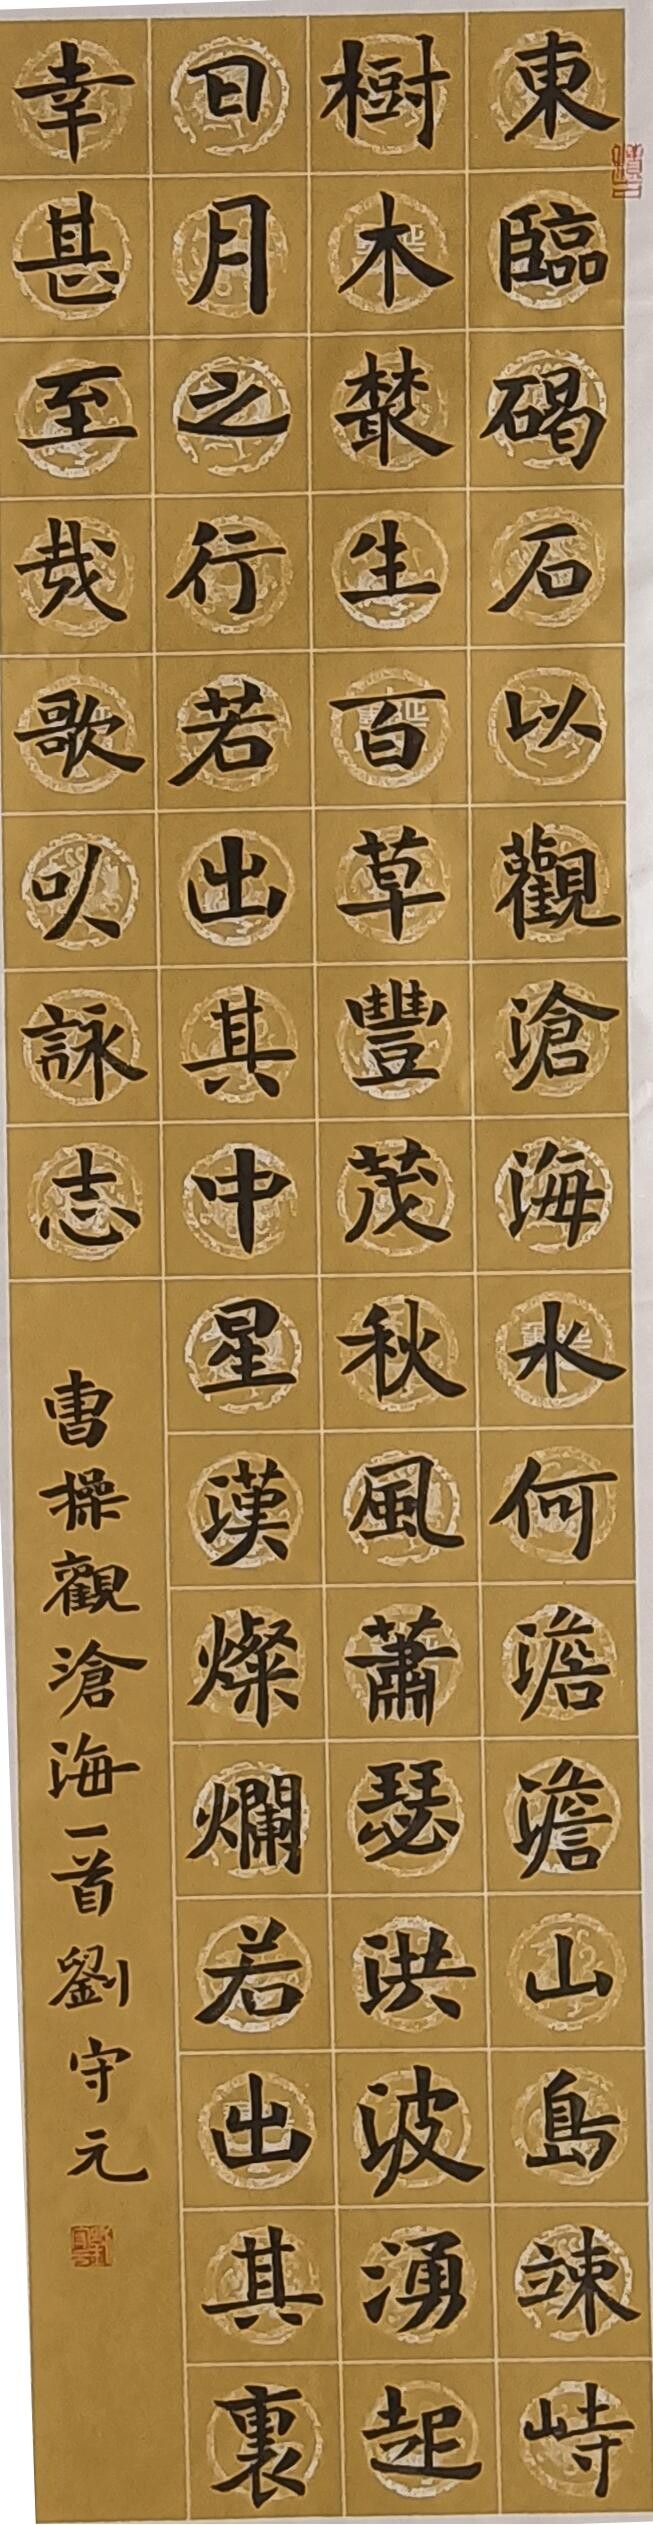 東臨碣石以觀滄海水何澹澹山島竦峙
樹木叢生百草豐茂秋風蕭瑟洪波湧起
日月之行若出其中星漢燦爛若出其裏
幸甚至哉歌以詠志
曹操觀滄海一首劉守元